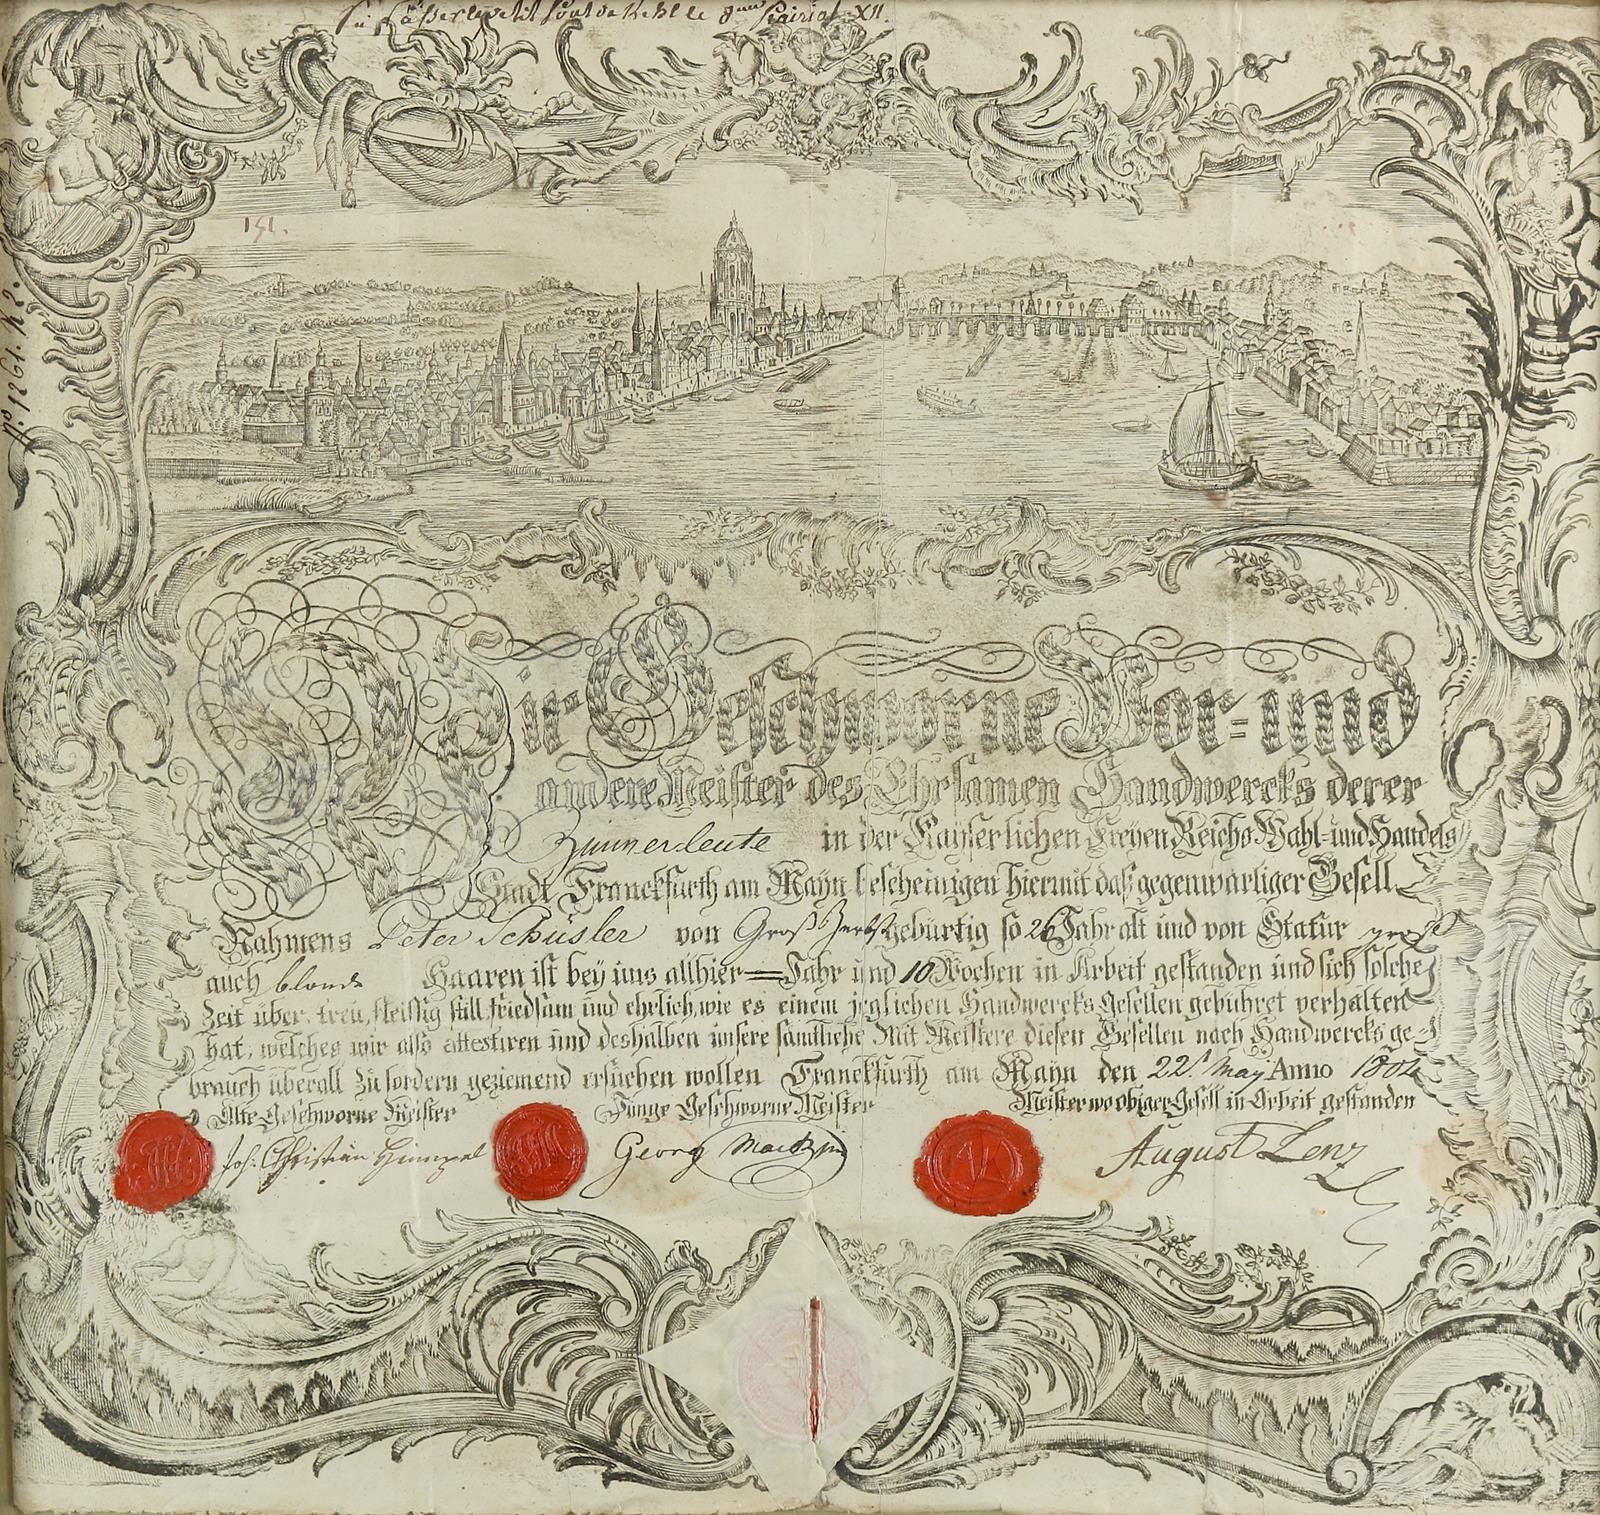 Prairial XII.
151.
No. 1261. R 2.
Wir Geschworne Vor= und
andere Meister des Ehrsamen Handwercks derer
Zimmerleute in der Kayserlichen Freyen Reichs Wahl- und Handels
Stadt Franckfurth am Mayn bescheinigen hiermit daß gegenwärtiger Gesell
Nahmens Peter Schüsler von Groß gebürtig so 26 Jahr alt und von Statur groß
auch blonde Haaren ist bey uns allhier — Jahr und 10 Wochen in Arbeit gestanden und sich solche
Zeit über, treu, fleissig still, friedsam und ehrlich, wie es einem jeglichen Handwercks Gesellen gebühret verhalten
hat, welches wir also attestiren und deshalben unsere sämtliche Mit Meistere diesen Gesellen nach Handwercks ge-
brauch überall zu fordern geziemend ersuchen wollen Franckfurth am Mayn den 22t. May Anno 1804
Alte Geschworne Meister Jünge Geschworne Meister Meister wo obiger Gesell in Arbeit gestanden
Joh. Christian Georg August Lenz